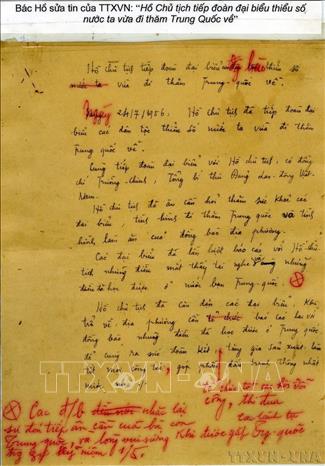 Bác Hồ sửa tin của TTXVN: “Hồ Chủ tịch tiếp đoàn đại biểu thiểu số
nước ta vừa đi thăm Trung Quốc về”
Hồ chủ tịch tiếp đoàn đại biểu thiểu số
ta vừa đi thăm Trung-quốc về.
Ngày 24/7/1956. Hồ chủ tịch đã tiếp đoàn đại
biểu các dân tộc thiểu số nước ta vừa đi thăm
Trung quốc về.
Cùng tiếp đoàn đại biểu với Hồ chủ tịch, có đồng
chí Trường-chinh, Tổng bí thư Đảng Lao động Việt-
Nam.
Hồ chủ tịch đã ân cần hỏi thăm sức khỏe các
đại biểu, tình hình đi thăm Trung quốc và tình
hình làm ăn của đồng bào địa phương.
Các đại biểu đã lần lượt báo cáo với Hồ chủ
tịch những điều mắt thấy tai nghe những
điều đã học được ở nước bạn Trung-quốc.
Hồ chủ tịch đã căn dặn các đại biểu, khi
trở về địa phương cần báo cáo lại với
đồng bào những điều đã học được ở Trung quốc
để cùng ra sức đoàn kết tăng gia sản xuất
góp phần thống nhất
TTXVN - VNA
Các đ/b nhắc lại
sự đón tiếp ân cần của bà con
Trung quốc, và lòng vui sướng khi được gặp
kỷ niệm 1/5.